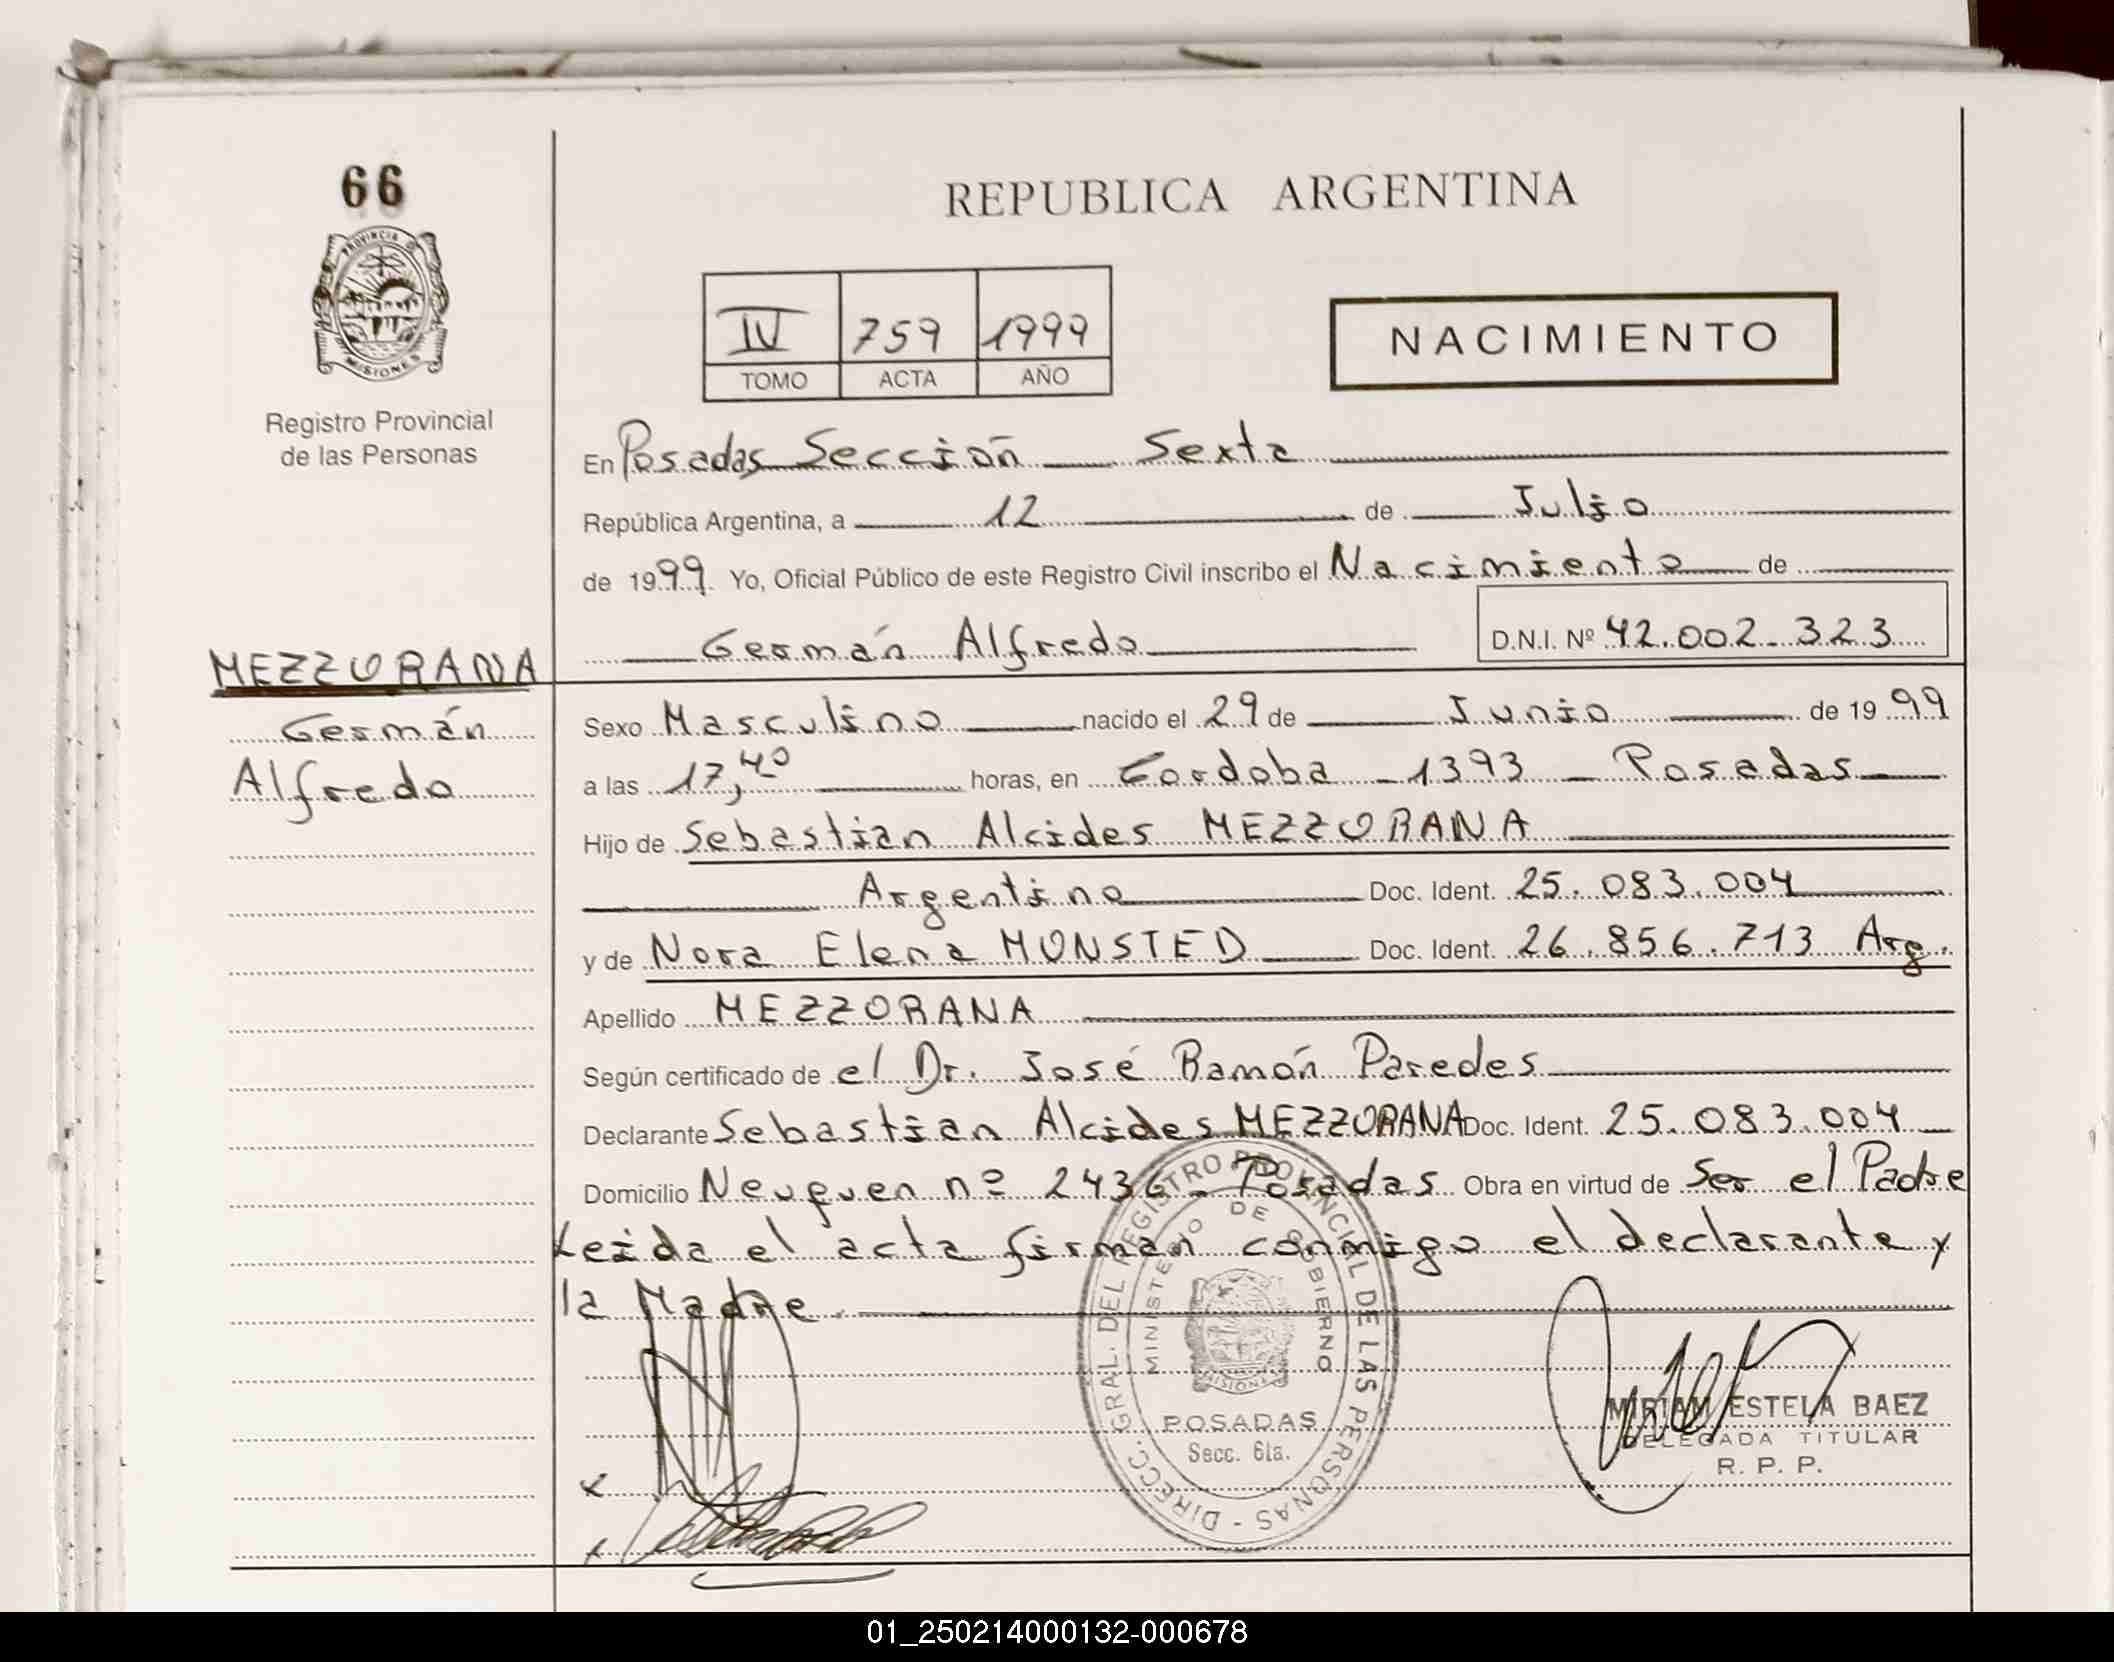 66
PROVINCIA DE
MISIONES
Registro Provincial
de las Personas
REPUBLICA ARGENTINA
IV 759 1999
TOMO ACTA AÑO
NACIMIENTO
En Posadas Sección Sexta
República Argentina, a 12 de Julio
de 1999. Yo, Oficial Público de este Registro Civil inscribo el Nacimiento de
Germán Alfredo D.N.I. Nº 42.002.323
MEZZORANA
Germán
Alfredo
Sexo Masculino nacido el 29 de Junio de 1999
a las 17,40 horas, en Cordoba - 1393 - Posadas
Hijo de Sebastian Alcides MEZZORANA
Argentino Doc. Ident. 25.083.004
y de Nora Elena MUNSTED Doc. Ident. 26.856.713 Arg.
Apellido MEZZORANA
Según certificado de el Dr. José Ramón Paredes
Declarante Sebastian Alcides MEZZORANA Doc. Ident. 25.083.004
Domicilio Neuquen nº 2436 - Posadas Obra en virtud de Ser el Padre
Leida el acta firman conmigo el declarante y
la Madre.
DIRECC. GRAL. DEL REGISTRO PROVINCIAL DE LAS PERSONAS -
MINISTERIO DE GOBIERNO
MISIONES
POSADAS
Secc. 6ta.
MIRIAM ESTELA BAEZ
DELEGADA TITULAR
R. P. P.
01_250214000132-000678